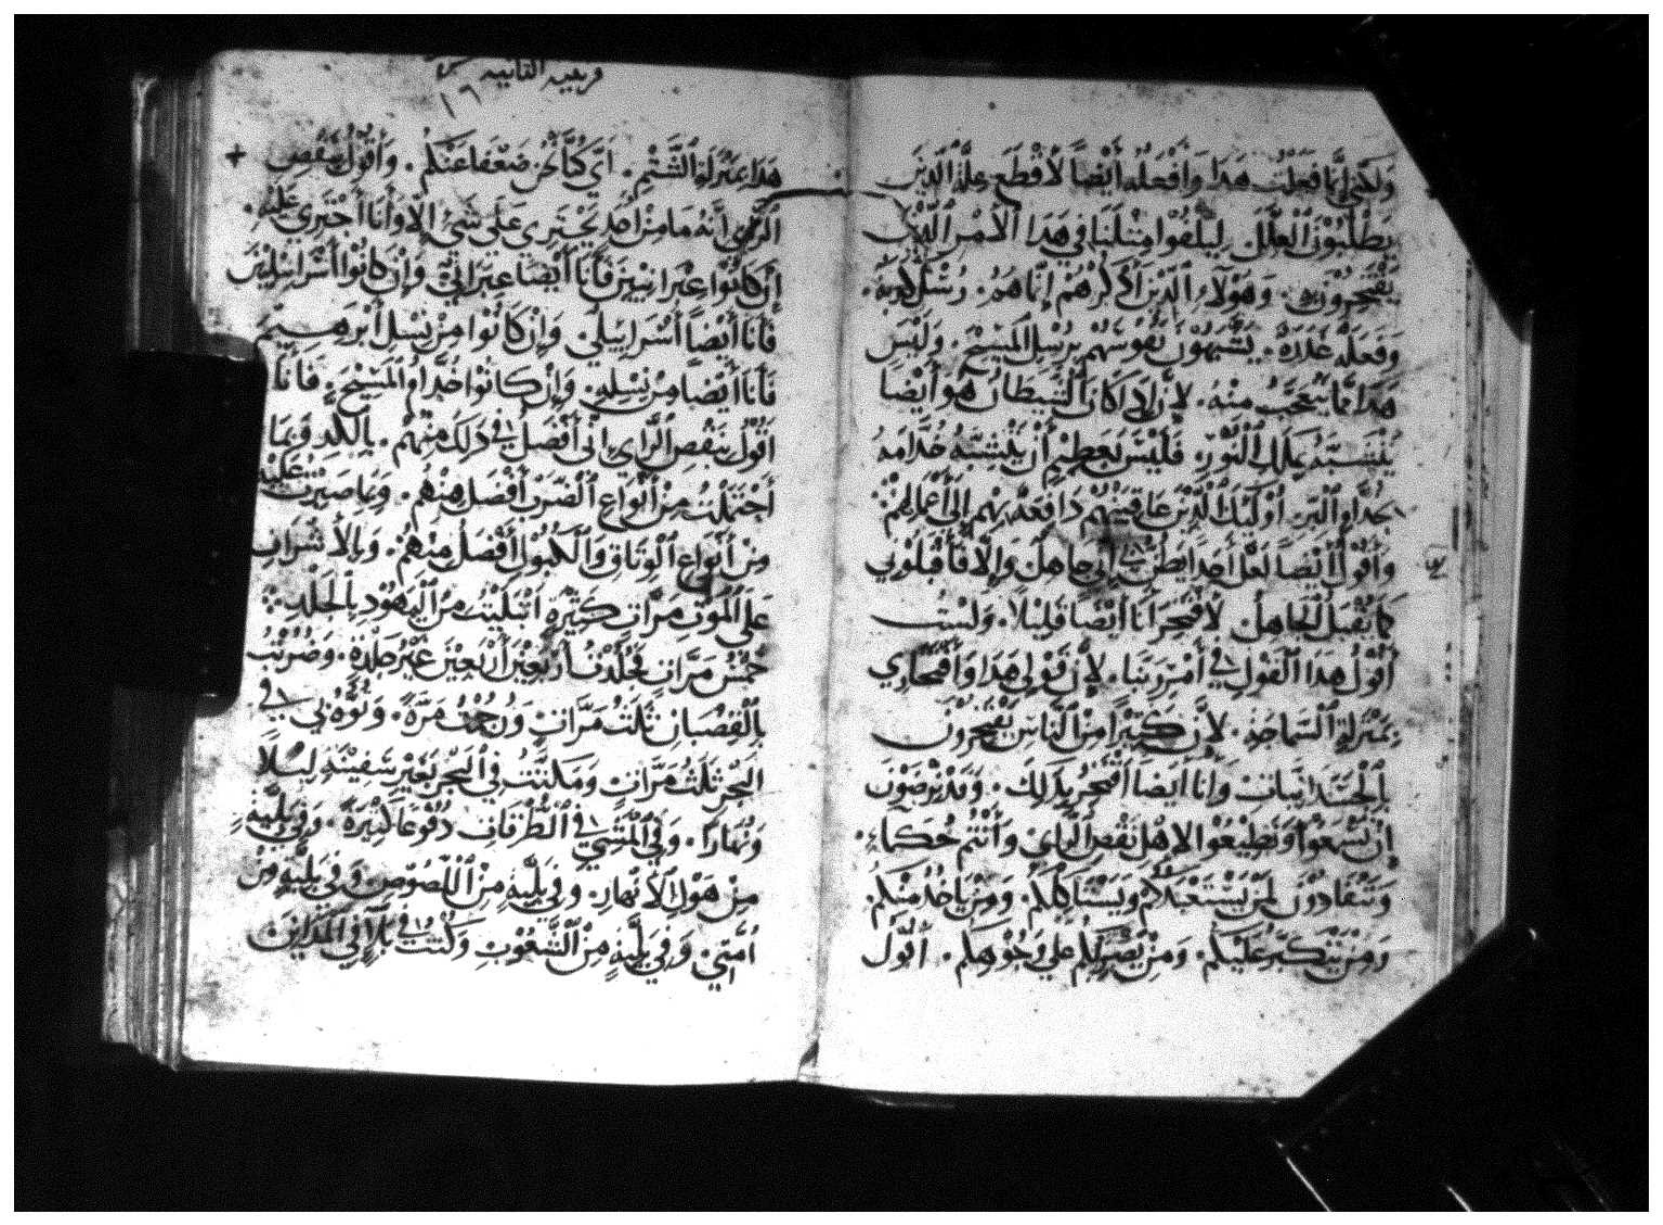 ولكني إنما فعلت هذا وأفعله أيضاً لأقطع علة الذين
يطلبون العلل. ليلفوا مثلنا في هذا الأمر الذي
يفتخرون به. وهولاء الذين أذكرهم إنما هم. رسل كذبة.
وفعله غدرة. يشبهون نفوسهم برسل المسيح. وليس
هذا مما يتعجب منه. لأن إذا كان الشيطان هو أيضا
يتشبه بملك النور. فليس بعظيم أن يتشبه خدامه
بخدام البر. أوليك الذين عاقبتهم دافعة بهم إلى أعمالهم
وأقول أيضاً لعل أحداً يظن بي إني جاهل وإلا فأقبلوني
كما يقبل الجاهل لأفتخر أنا أيضا قليلاً. ولست
أقول هذا القول في أمر ربنا. لأن قولي هذا وافتخاري
بمنزلة السماجة. لأن كثيراً من الناس يفتخرون
بالجسدانيات وانا ايضا أفتخر بذلك. وقد ترضون
إن تسمعوا وتطيعوا لاهل نقص الراي وأنتم حكماء.
وتنقادون لمن يستعبدكم ويستاكلكم. ومن ياخذ منكم.
ومن يتكبر عليكم. ومن يضربكم على وجوهكم. أقول
قريبه الثانيه
١٦
هذا بمنزلة الشتم. أي كنا نحن ضعفا عنكم. وأقول بنقص
الراي أنه ما من أحد يجتري على شي إلا وأنا أجتري عليه.
إن كانوا عبرانيين فأنا أيضا عبراني وإن كانوا أسرايليين
فأنا أيضاً أسراييلي. وإن كانوا من نسل أبرهيم
فأنا أيضا من نسله. وإن كانوا خدام المسيح. فانا
أقول بنقص الراي إني أفضل في ذلك منهم. بالكد وبما
أحتملت من أنواع الضرب أفضل منهم. وبما صبرت عليه
من أنواع الوثاق والكبول أفضل منهم. وبالأشراف
على الموت مرات كثيرة أبتليت من اليهود بالجلد
خمس مرات فجلدت أربعين أربعين غير جلدة. وضربت
بالقضبان ثلث مرات ورجمت مرة. ونوه بي في
البحر ثلث مرات ومكثت في البحر بغير سفينة ليلاً
ونهاراً. وفي المشي في الطرقات دفوعا كثيرة. وفي بلية
من هول الأنهار. وفي بلية من اللصوص. وفي بلية من
أمتي. وفي بلية من الشعوب وكنت في بلا في المداين